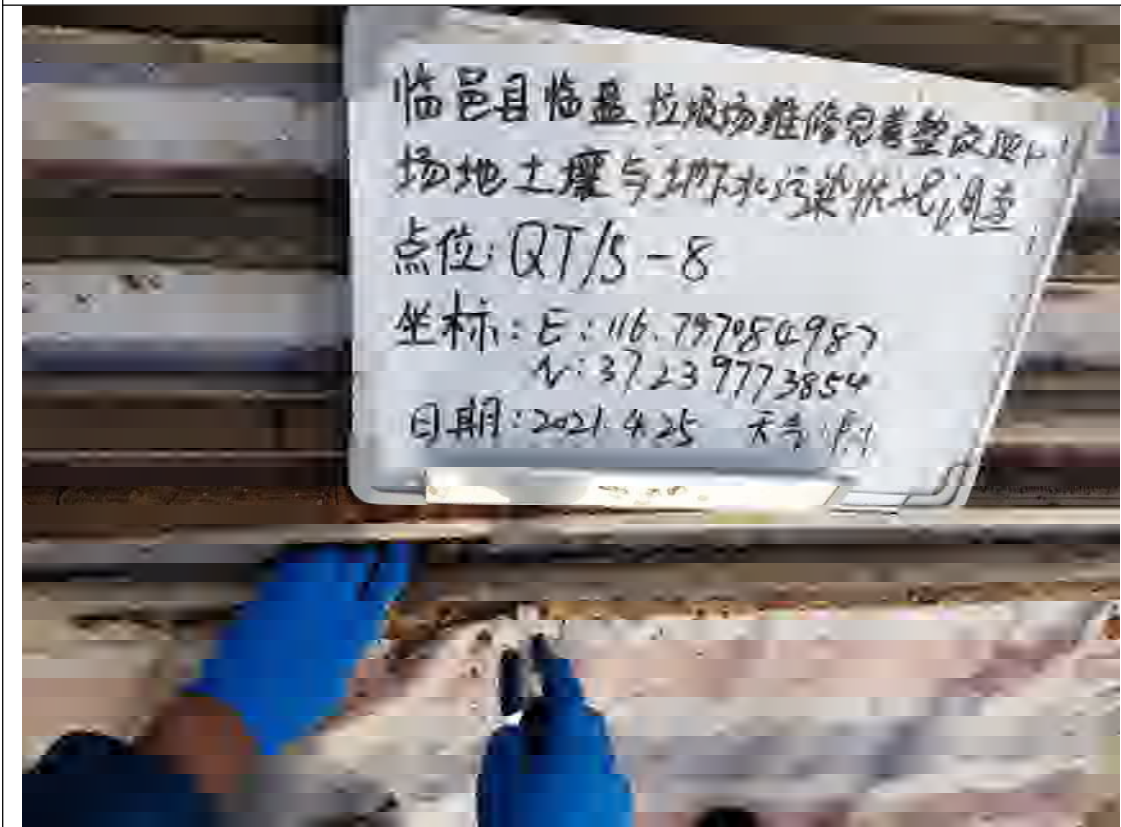 临邑县临盘垃圾场维修完善整改项
场地土壤与地下水污染状况调查
点位:QT/S-8
坐标:E:116.797084987
N:37.2397773854
日期:2021.4.25 天气: